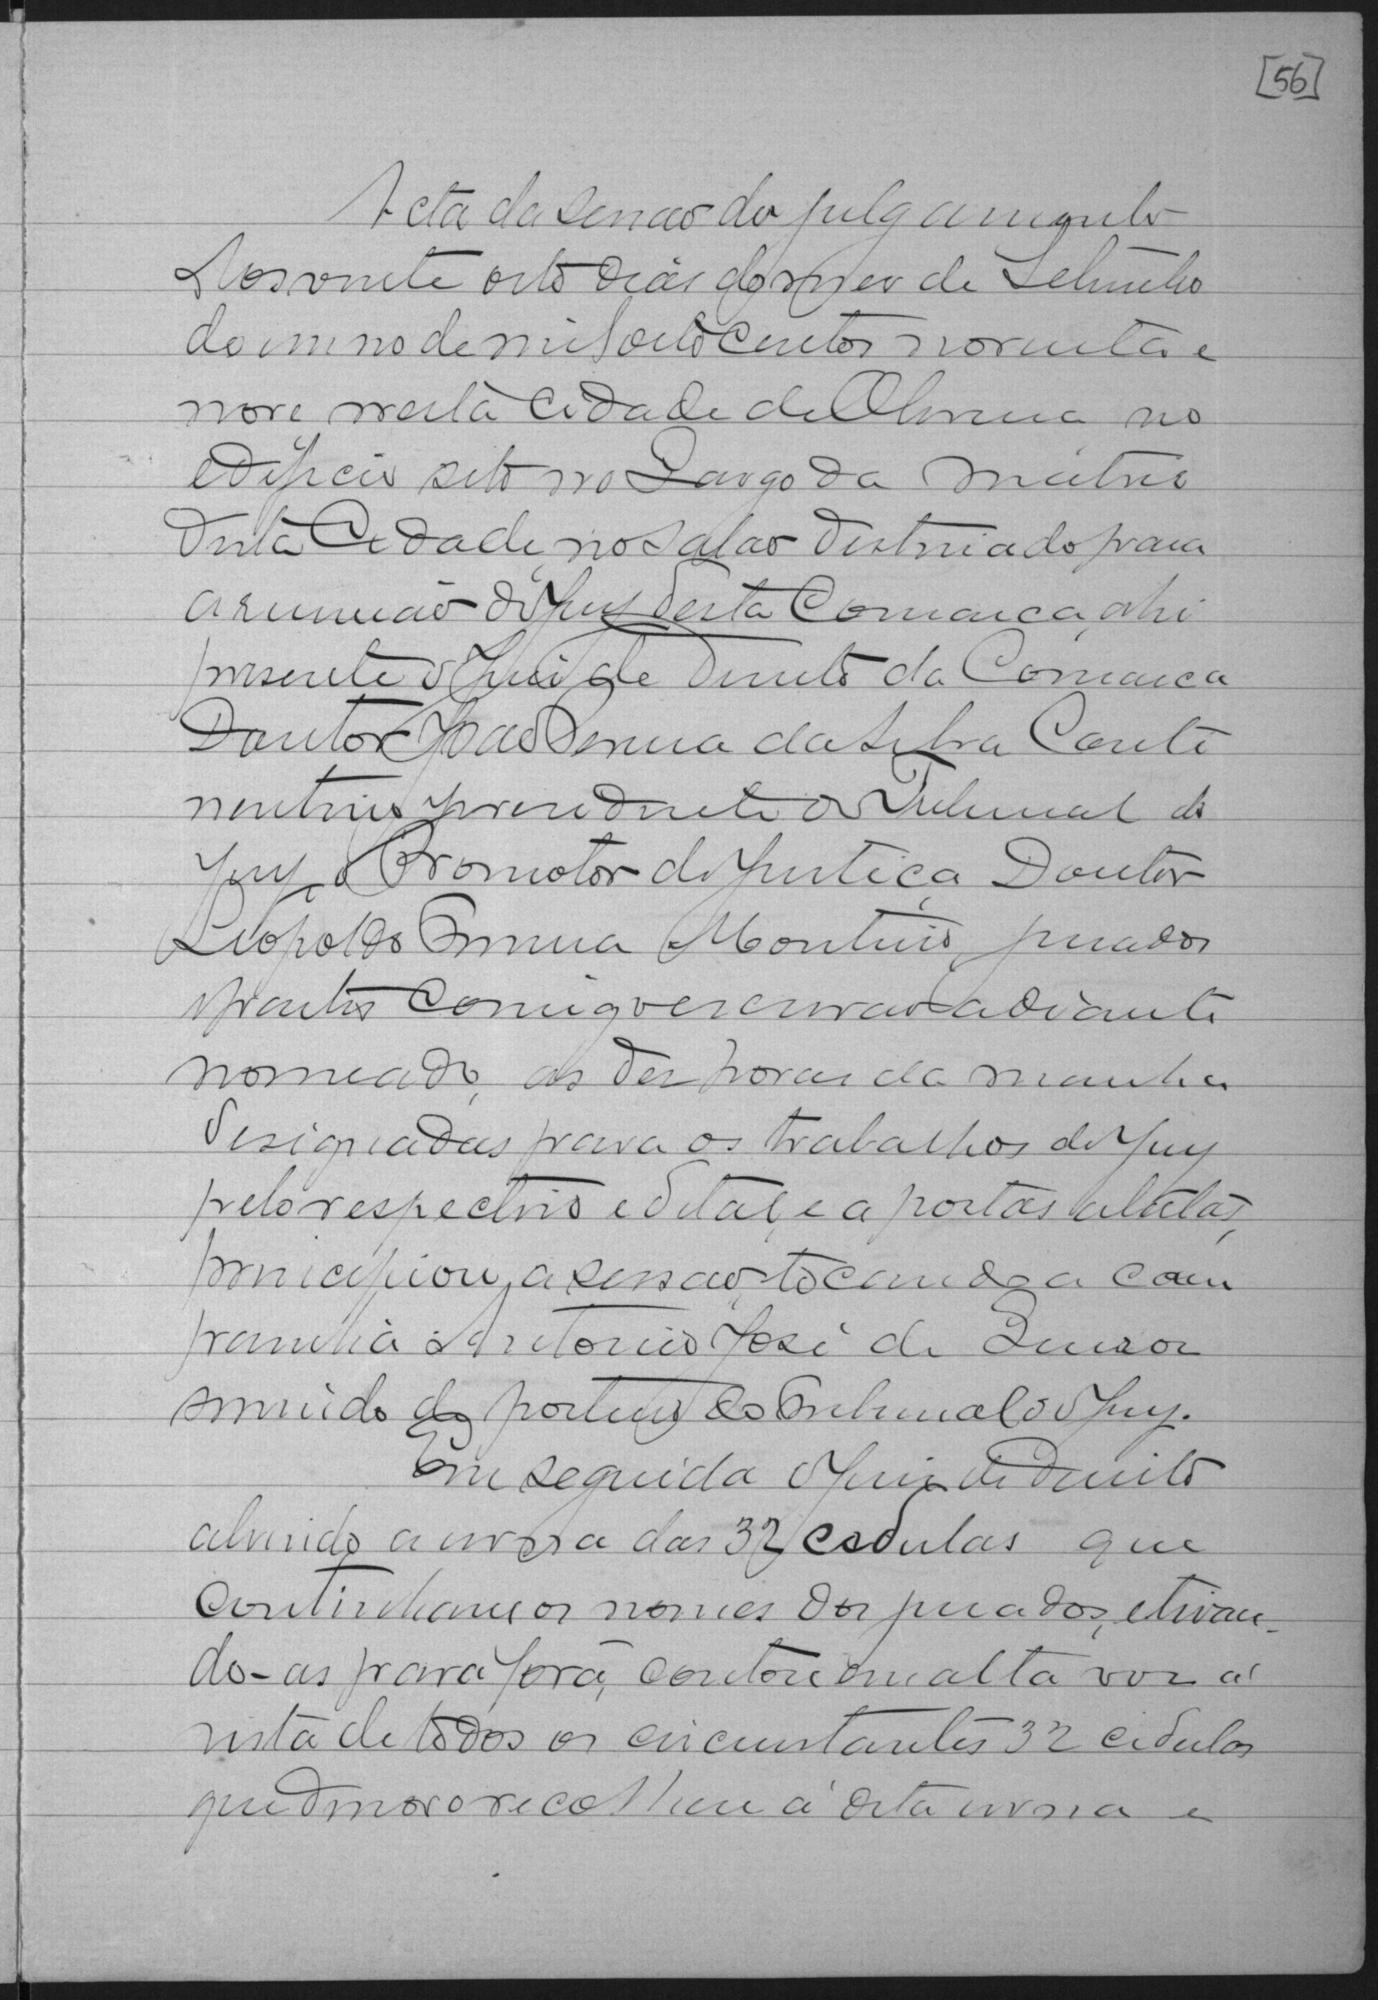 [56]
Acta da sessão do julgamento
Aos vinte oito dias do mez de Setembro
do anno de mil oitocentos noventa e
nove nesta Cidade de Oliveira no
edificio sito no Largo da Matriz
desta Cidade, no salão destinado para
a reunião do Jury desta Comarca, ahi
presente o Juiz de Direito da Comarca
Doutor João Pereira da Silva Conti
nentino, presidente do Tribunal do
Jury, o Promotor de Justiça Doutor
Leopoldo Ferreira Monteiro, jurados
e partes comigo escrivão adiante
nomeado, as dez horas da manhã
designadas para os trabalhos do Jury
pelo respectivo edital, e a portas abertas,
principiou a sessão, tocando a cam
painha Antonio José de
servindo de porteiro do Tribunal do Jury.
Em seguida o Juiz de Direito
abrindo a urna das 32 cedulas que
continham os nomes dos jurados, e tiran-
do-as para fora, contou em alta voz a'
vista de todos os circunstantes 32 cedulas
que de novo recolheu á dita urna e